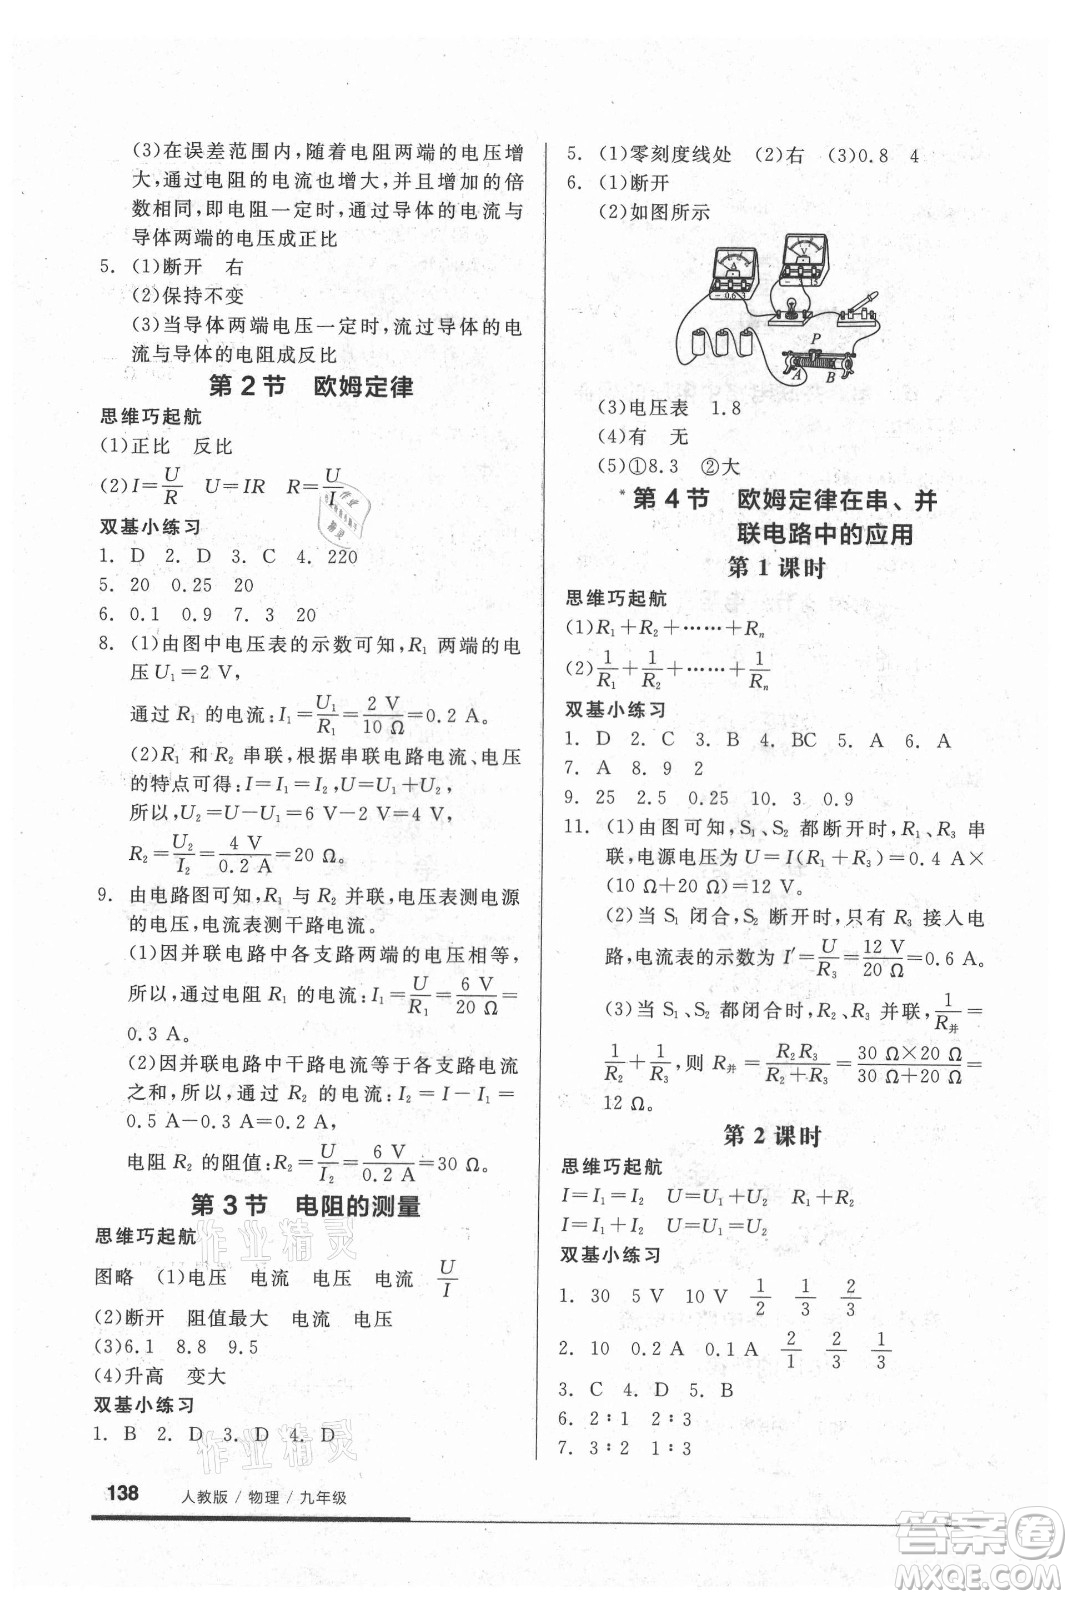 (3)在误差范围内,随着电阻两端的电压增
大,通过电阻的电流也增大,并且增大的倍
数相同,即电阻一定时,通过导体的电流与
导体两端的电压成正比
5. (1)断开 右
(2)保持不变
(3)当导体两端电压一定时,流过导体的电
流与导体的电阻成反比
第2节 欧姆定律
思维巧起航
(1)正比 反比
(2)I=U/R U=IR R=U/I
双基小练习
1. D 2. D 3. C 4. 220
5. 20 0.25 20
6. 0.1 0.9 7. 3 20
8. (1)由图中电压表的示数可知,R₁ 两端的电
压U₁=2 V,
通过 R₁ 的电流:I₁=U₁/R₁=2 V/10 Ω=0.2 A。
(2)R₁ 和 R₂ 串联,根据串联电路电流、电压
的特点可得:I=I₁=I₂,U=U₁+U₂,
所以,U₂=U-U₁=6 V-2 V=4 V,
R₂=U₂/I₂=4 V/0.2 A=20 Ω。
9. 由电路图可知,R₁ 与 R₂ 并联,电压表测电源
的电压,电流表测干路电流。
(1)因并联电路中各支路两端的电压相等,
所以,通过电阻 R₁ 的电流:I₁=U/R₁=6 V/20 Ω=
0.3 A。
(2)因并联电路中干路电流等于各支路电流
之和,所以,通过 R₂ 的电流:I₂=I-I₁=
0.5 A-0.3 A=0.2 A,
电阻 R₂ 的阻值:R₂=U/I₂=6 V/0.2 A=30 Ω。
第3节 电阻的测量
思维巧起航
图略 (1)电压 电流 电压 电流 U/I
(2)断开 阻值最大 电流 电压
(3)6.1 8.8 9.5
(4)升高 变大
双基小练习
1. B 2. D 3. D 4. D
5. (1)零刻度线处 (2)右 (3)0.8 4
6. (1)断开
(2)如图所示
A
V
- 0.6 3
P
A B
(3)电压表 1.8
(4)有 无
(5)①8.3 ②大
*第4节 欧姆定律在串、并
联电路中的应用
第1课时
思维巧起航
(1)R₁+R₂+……+Rₙ
(2)1/R₁+1/R₂+……+1/Rₙ
双基小练习
1. D 2. C 3. B 4. BC 5. A 6. A
7. A 8. 9 2
9. 25 2.5 0.25 10. 3 0.9
11. (1)由图可知,S₁、S₂ 都断开时,R₁、R₃ 串
联,电源电压为 U=I(R₁+R₃)=0.4 A×
(10 Ω+20 Ω)=12 V。
(2)当 S₁ 闭合,S₂ 断开时,只有 R₃ 接入电
路,电流表的示数为 I′=U/R₃=12 V/20 Ω=0.6 A。
(3)当 S₁、S₂ 都闭合时,R₂、R₃ 并联,1/R并=
1/R₂+1/R₃,则 R并=R₂R₃/(R₂+R₃)=(30 Ω×20 Ω)/(30 Ω+20 Ω)=
12 Ω。
第2课时
思维巧起航
I=I₁=I₂ U=U₁+U₂ R=R₁+R₂
I=I₁+I₂ U=U₁=U₂
双基小练习
1. 30 5 V 10 V 1/2 1/3 2/3
2. 10 0.2 A 0.1 A 2/1 2/3 1/3
3. C 4. D 5. B
6. 2∶1 2∶3
7. 3∶2 1∶3
138 人教版/物理/九年级
作业精灵
作业精灵
答案卷
MXQE.COM